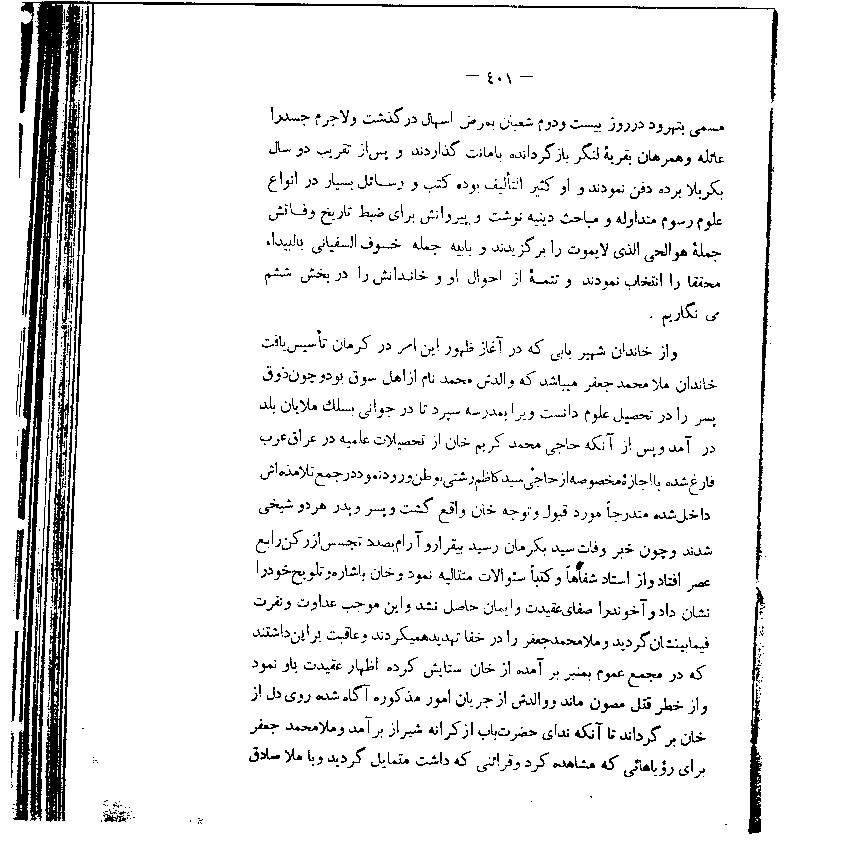 — ٤٠١ —
مسمی بتهرود درروز بیست ودوم شعبان بمرض اسهال درگذشت ولاجرم جسدرا
عائله وهمرهان بقریهٔ لنگر بازگردانده بامانت گذاردند و پس‌از تقریب دو سال
بکربلا برده دفن نمودند و او کثیر التألیف بوده کتب و رسائل بسیار در انواع
علوم رسوم متداوله و مباحث دینیه نوشت و پیروانش برای ضبط تاریخ وفاتش
جملهٔ هوالحی الذی لایموت را برگزیدند و بابیه جمله خسوف السفیانی بالبیداء
محققا را انتخاب نمودند و تتمهٔ از احوال او و خاندانش را در بخش ششم
می نگاریم .
واز خاندان شهیر بابی که در آغاز ظهور این امر در کرمان تأسیس‌یافت
خاندان ملا محمد جعفر میباشد که والدش محمد نام ازاهل سوق بودوچون‌ذوق
پسر را در تحصیل علوم دانست ویرا بمدرسه سپرد تا در جوانی بسلك ملایان بلد
در آمد وپس از آنکه حاجی محمد کریم خان از تحصیلات علمیه در عراق‌عرب
فارغ‌شده بااجازهٔ‌مخصوصه‌از‌حاجی‌سیدکاظم‌رشتی‌بوطن‌ورودنمود‌درجمع‌تلامذه‌اش
داخل‌شده متدرجاً مورد قبول وتوجه خان واقع گشت وپسر وپدر هردو شیخی
شدند وچون خبر وفات سید بکرمان رسید بیقرارو آرام‌بصدد تجسس‌ازرکن‌رابع
عصر افتاد واز استاد شفاهاً وکتباً سئوالات متتالیه نمود وخان باشاره‌وتلویح‌خودرا
نشان داد و آخوندرا صفای‌عقیدت وایمان حاصل نشد واین موجب عداوت ونفرت
فیمابینشان‌گردید وملامحمدجعفر را در خفا تهدیدهمیکردند وعاقبت براین‌داشتند
که در مجمع عموم بمنبر بر آمده از خان ستایش کرده اظهار عقیدت باو نمود
واز خطر قتل مصون ماند ووالدش از جریان امور مذکوره آگاه شده روی دل از
خان بر گرداند تا آنکه ندای حضرت‌باب ازکرانه شیراز بر آمد وملامحمد جعفر
برای رؤیاهائی که مشاهده کرد وقرائنی که داشت متمایل گردید وبا ملا صادق